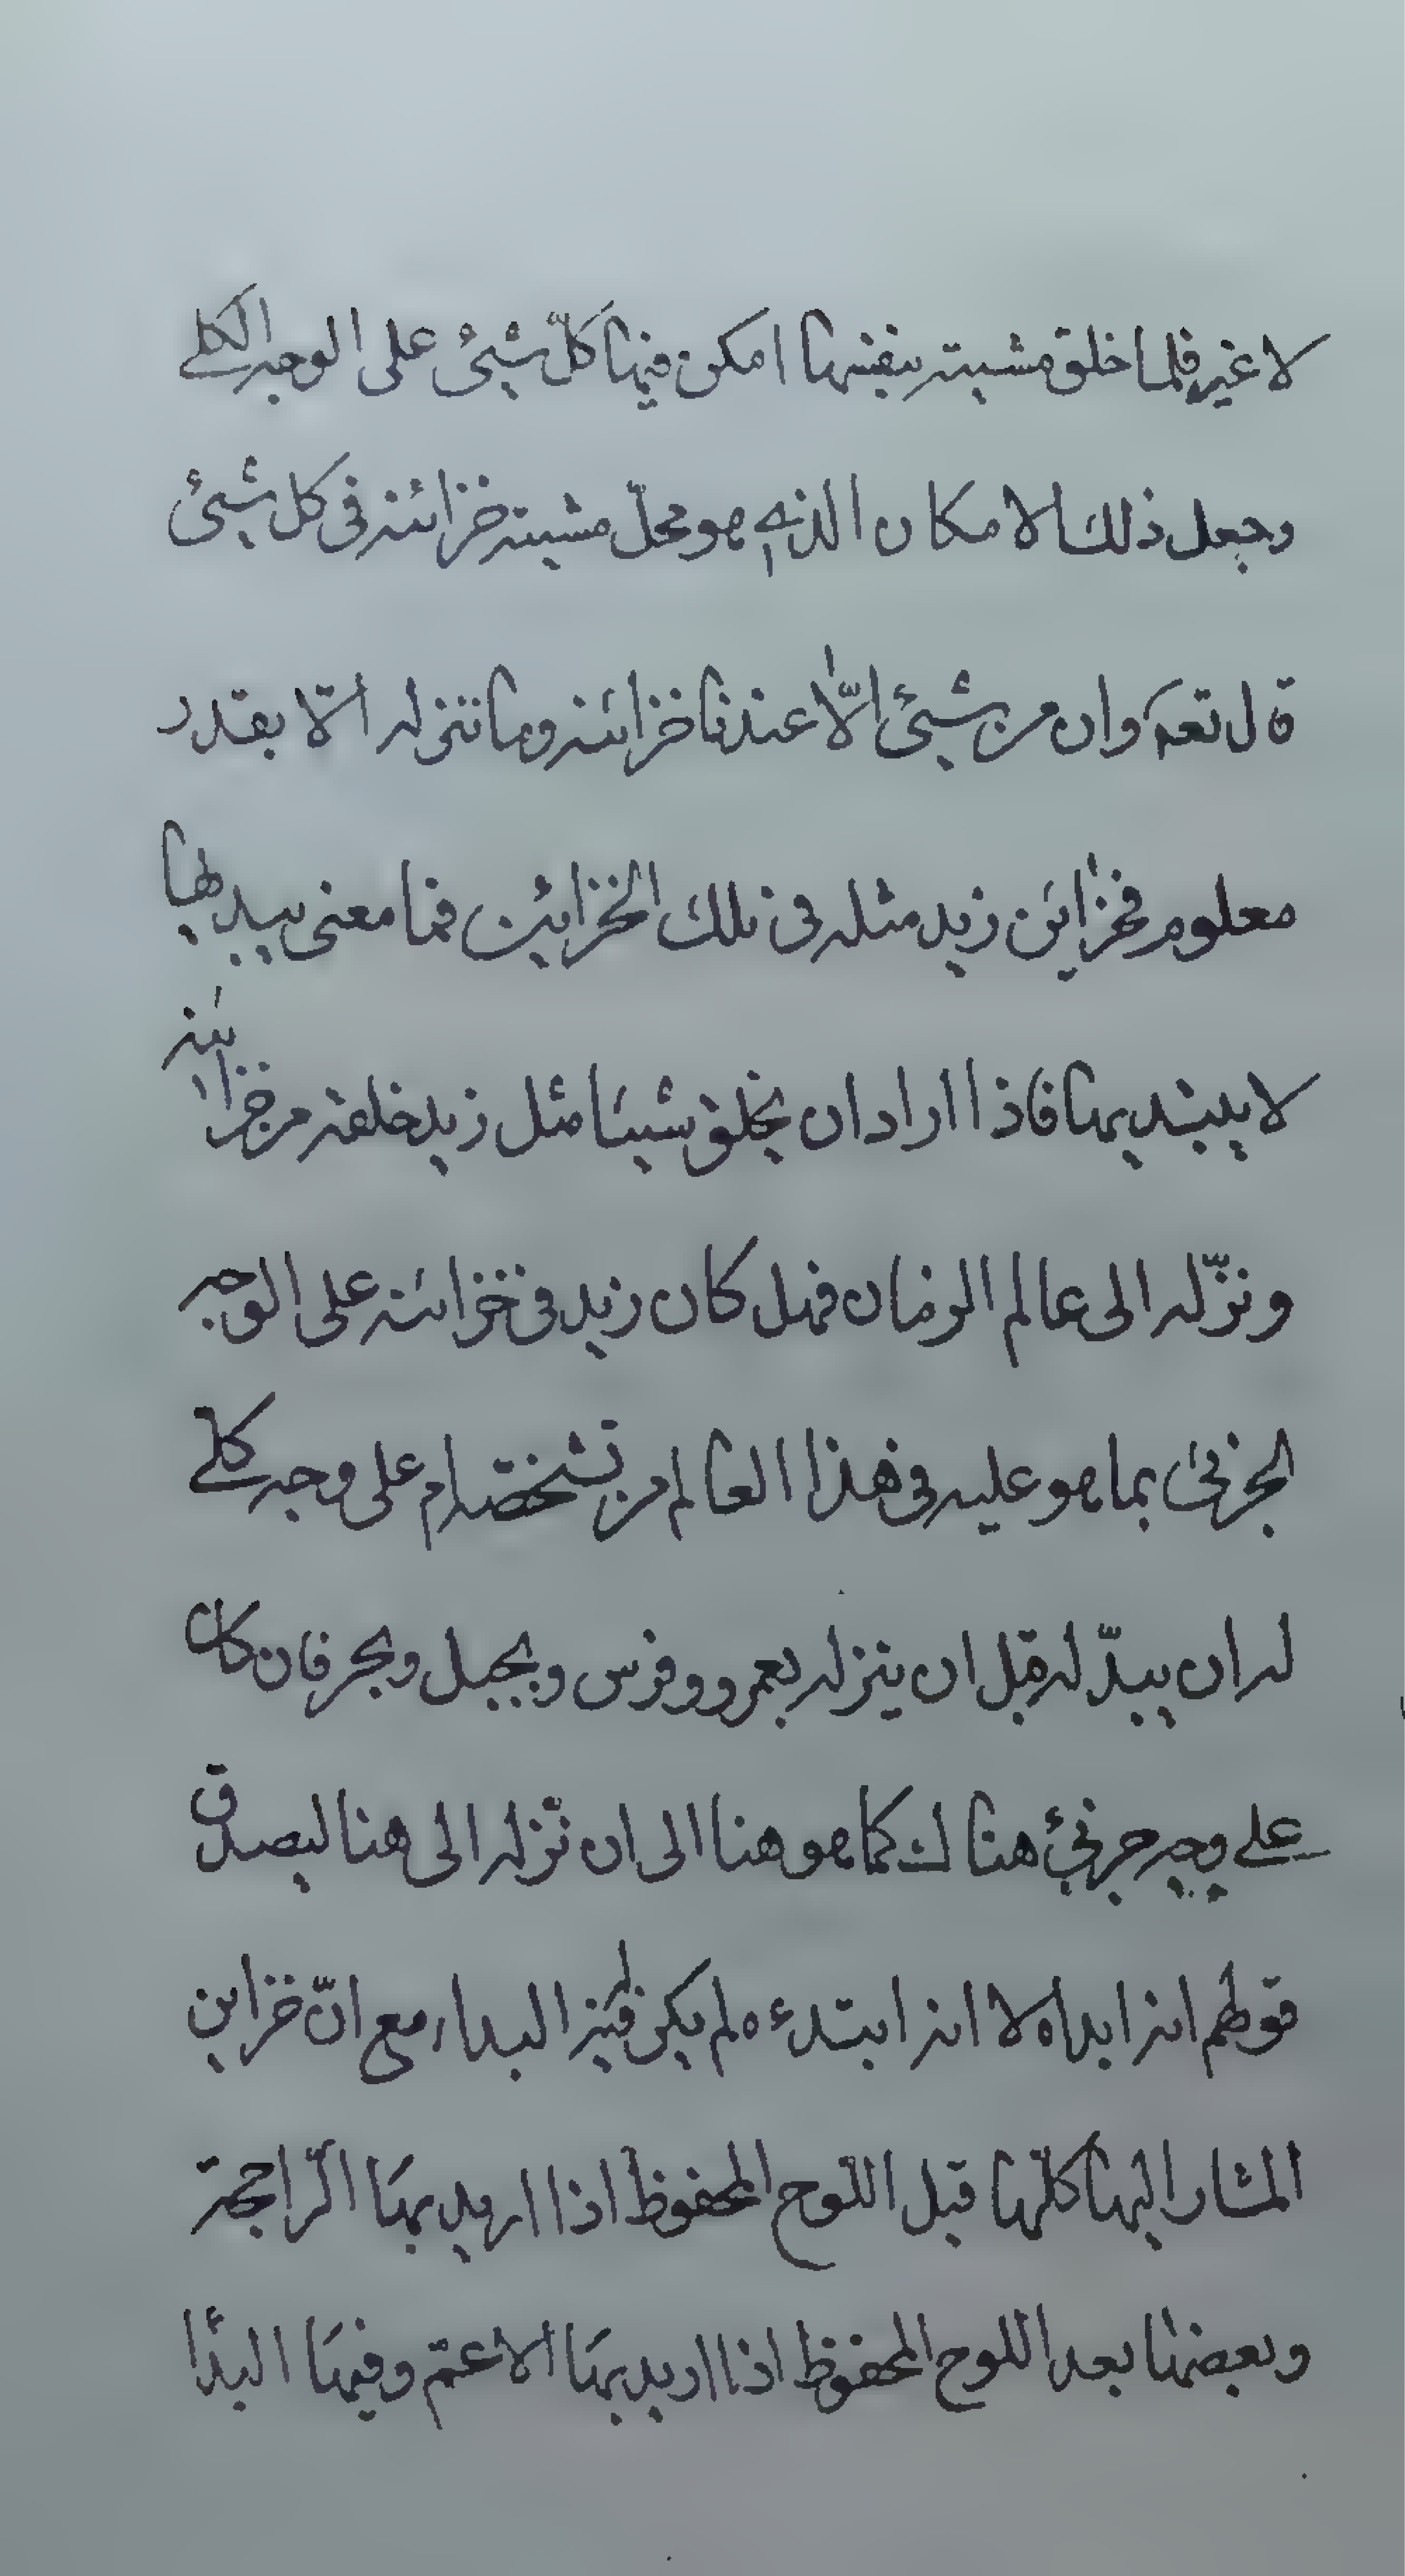 لا غير فلما خلق مشيته بنفسها امكن فيها كلّ شيئ على الوجه الكلے
وجعل ذلك الامكان الذي هو محلّ مشيته خزائنه فى كل شيئ
قال تعه وان من شيئ الّا عندنا خزائنه وما ننزله الّا بقدر
معلوم فخزاين زيد مثله فى تلك الخزاين فما معنى يبد لها
لا يبتد يها فاذا اراد ان يخلق شيئا مثل زيد خلقه من خزائنه
ونزّله الى عالم الزمان فهل كان زيد فى خزائنه على الوجه
الجزئى بما هو عليه فى هذا العالم من تشخصه ام على وجه كلے
له ان يبدّ له قبل ان ينزله بعمرو وفرس وبجبل وبحر فان كان
علے وجه جزئي هناك كما هو هنا الى ان نزّله الى هنا ليصدق
قولهم انه ابداه لا انه ابتدء ه لم يكن فيه البداء مع انّ خزاين
المشار اليها كلّها قبل اللّوح المحفوظ اذا اريد بها الرّاجحة
وبعضها بعد اللوح المحفوظ اذا اريد بها الاعمّ وفيها البدأ